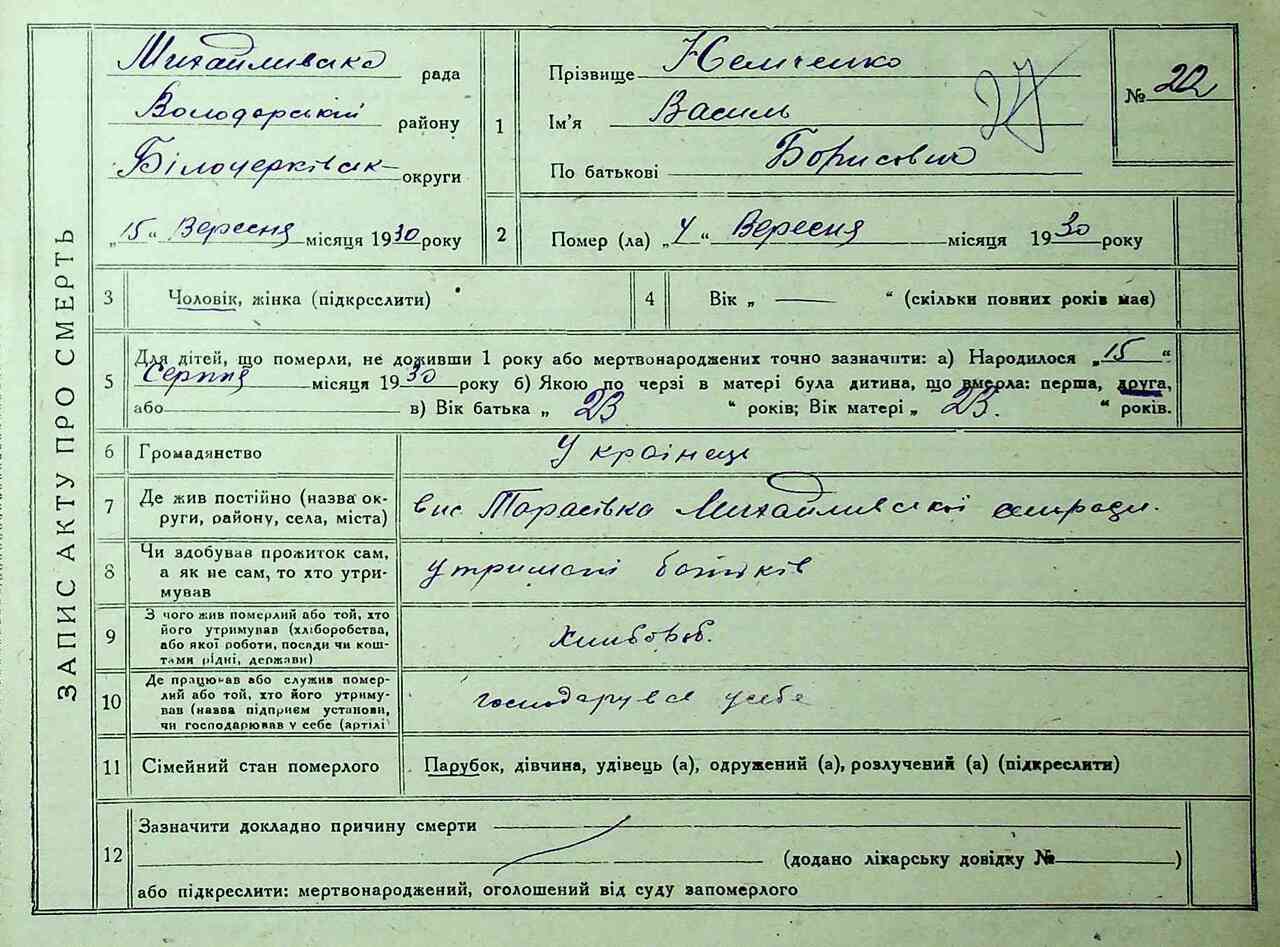 ЗАПИС АКТУ ПРО СМЕРТЬ
Михайливска рада
Володарський району
Білочерківськ округи
„15“ Вересня місяця 1930 року
1
Прізвище Немченко
Ім'я Василь
По батькові Борисович
27
№ 22
2 Помер (ла) „4“ Вересня місяця 1930 року
3 Чоловік, жінка (підкреслити)
4 Вік „ — “ (скільки повних років має)
5 Для дітей, що померли, не доживши 1 року або мертвонароджених точно зазначити: а) Народилося „15“
Серпня місяця 1930 року б) Якою по черзі в матері була дитина, що вмерла: перша, друга,
або в) Вік батька „ 23 “ років; Вік матері „ 23. “ років.
6 Громадянство Українець
7 Де жив постійно (назва ок-
руги, району, села, міста)
вис Тарасівка Михайливської сільради.
8 Чи здобував прожиток сам,
а як не сам, то хто утри-
мував
утриманні батьків
9 З чого жив померлий або той, хто
його утримував (хліборобства,
або якої роботи, посади чи кош-
тами рідні, держави)
Хлибороб.
10 Де працював або служив помер-
лий або той, хто його утриму-
вав (назва підприєм установи,
чи господарював у себе (артілі
господарував у себе
11 Сімейний стан померлого Парубок, дівчина, удівець (а), одружений (а), розлучений (а) (підкреслити)
12 Зазначити докладно причину смерти
(додано лікарську довідку № )
або підкреслити: мертвонароджений, оголошений від суду запомерлого